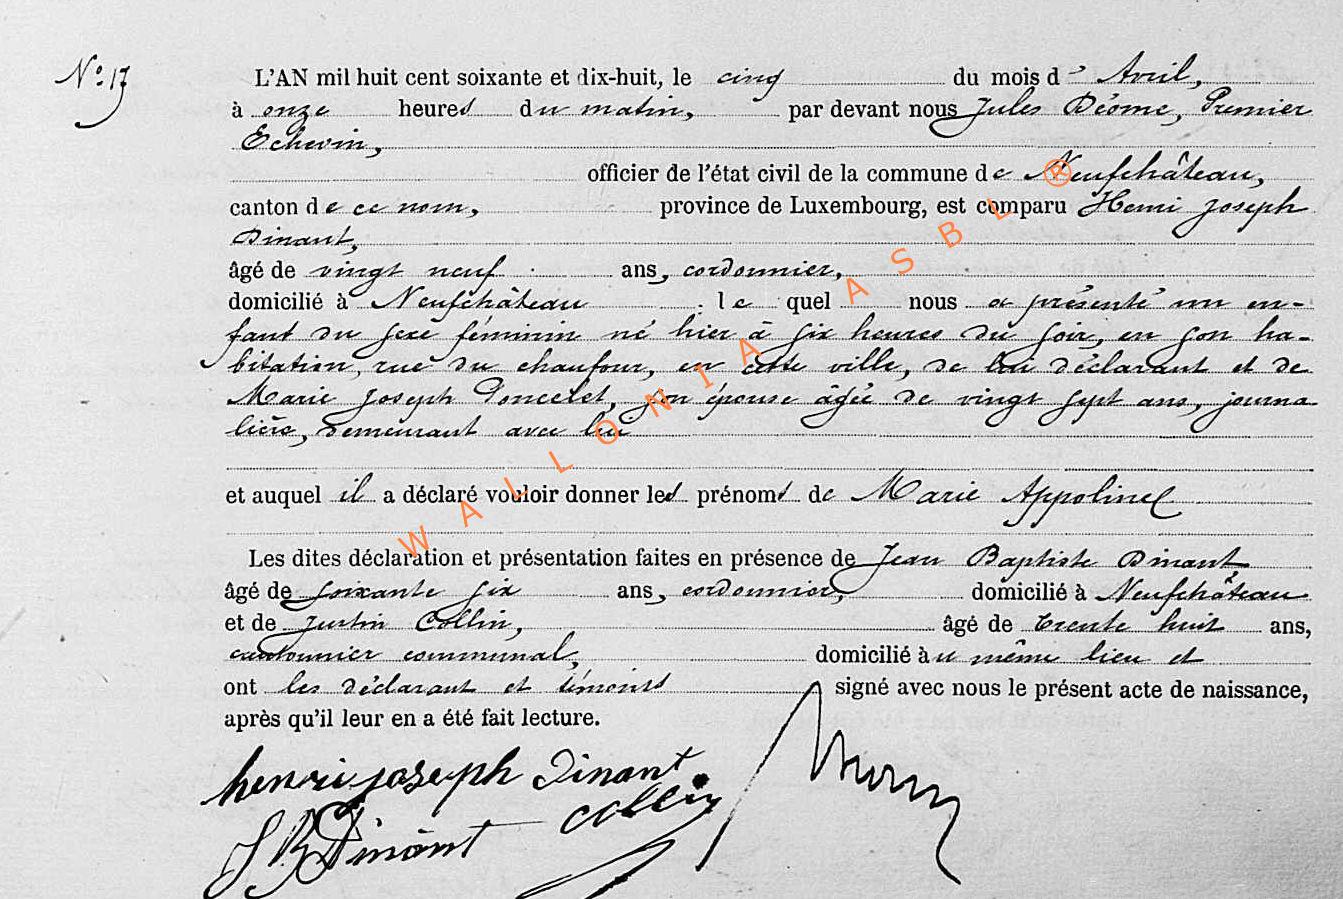 N° 17
L'AN mil huit cent soixante et dix-huit, le cinq du mois d' Avril,
à onze heures du matin, par devant nous Jules Déome, Premier
Echevin,
officier de l'état civil de la commune de Neufchâteau,
canton de ce nom, province de Luxembourg, est comparu Henri Joseph
Dinant,
âgé de vingt neuf ans, cordonnier,
domicilié à Neufchâteau lequel nous a présenté un en-
fant du sexe féminin né hier à six heures du soir, en son ha-
bitation, rue du chaufour, en cette ville, de lui déclarant et de
Marie Joseph Poncelet, son épouse âgée de vingt sept ans, journa
lière, demeurant avec lui
et auquel il a déclaré vouloir donner les prénoms de Marie Appoline
Les dites déclaration et présentation faites en présence de Jean Baptiste Dinant
âgé de soixante six ans, cordonnier, domicilié à Neufchâteau
et de Justin Collin, âgé de trente huit ans,
cantonnier communal, domicilié au même lieu et
ont les déclarant et témoins signé avec nous le présent acte de naissance,
après qu'il leur en a été fait lecture.
henri joseph Dinant
Collin
J B Dinant
WALLONIA ASBL ®